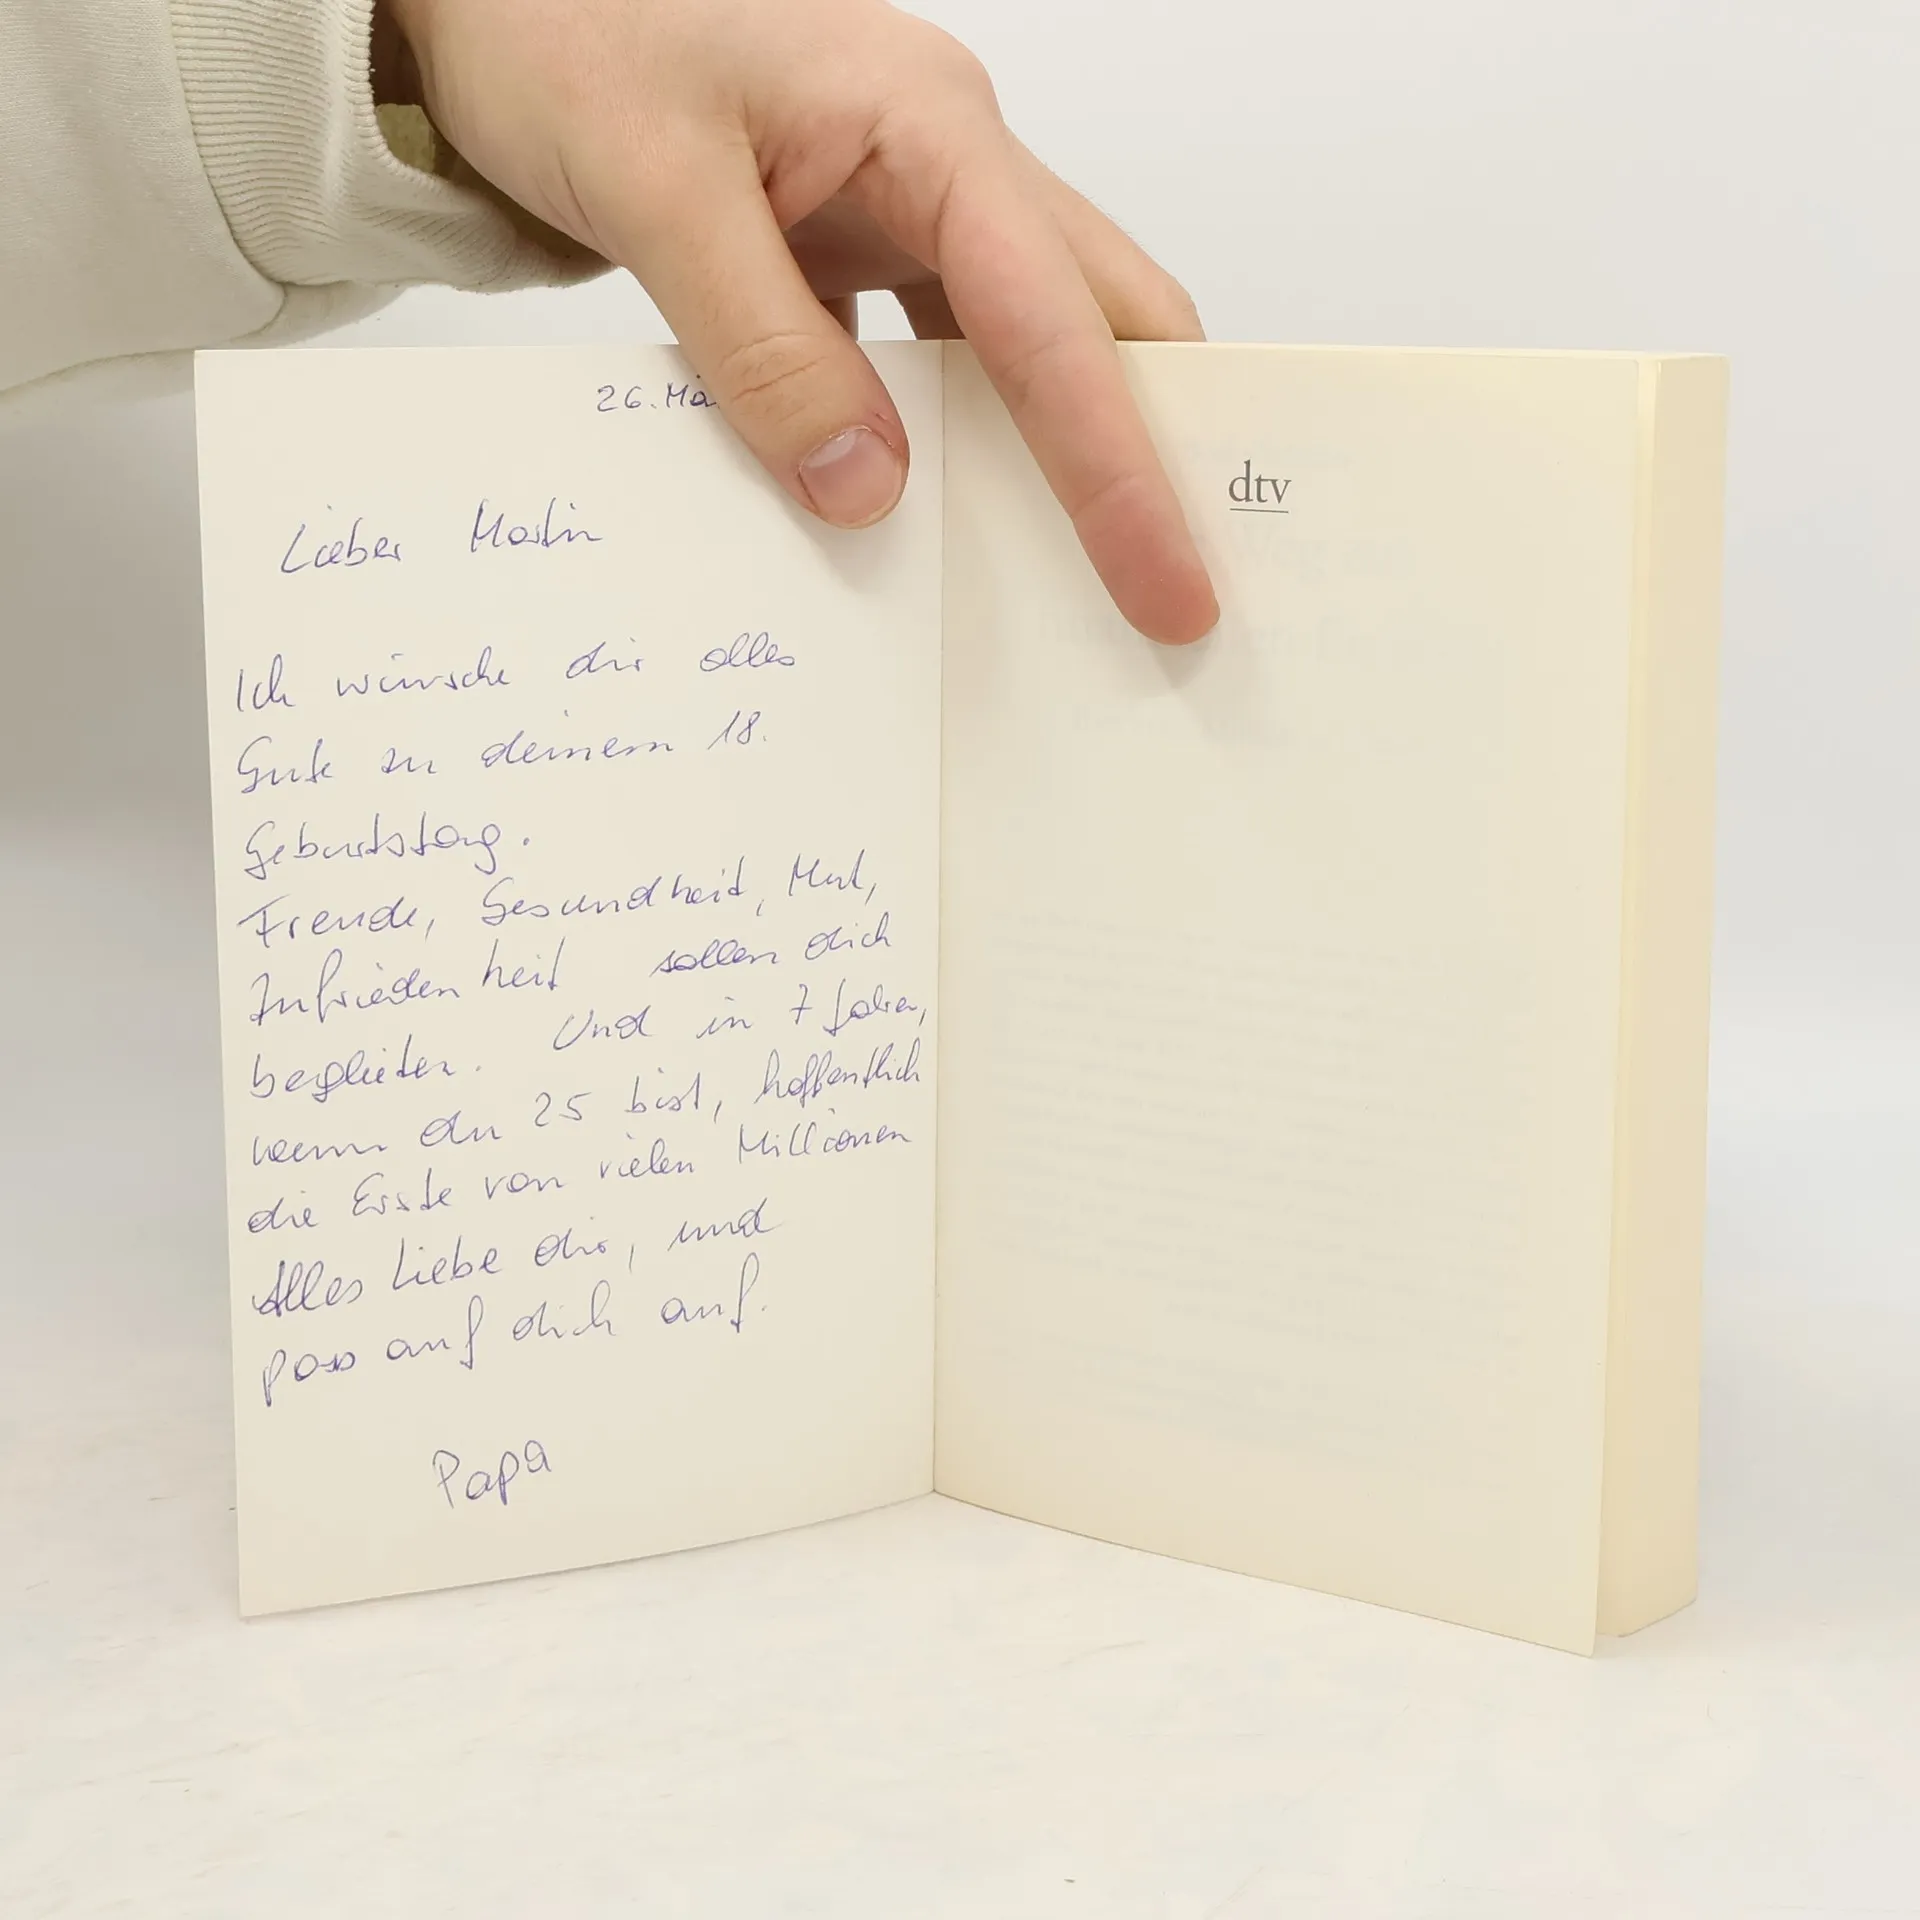 26. Mä
Lieber Martin
Ich wünsche dir alles
Gute zu deinem 18.
Geburtstag.
Freude, Gesundheit, Mut,
Zufriedenheit sollen dich
begleiten. Und in 7 Jahren,
wenn du 25 bist, hoffentlich
die Erste von vielen Millionen
Alles Liebe dir, und
pass auf dich auf.
Papa
dtv